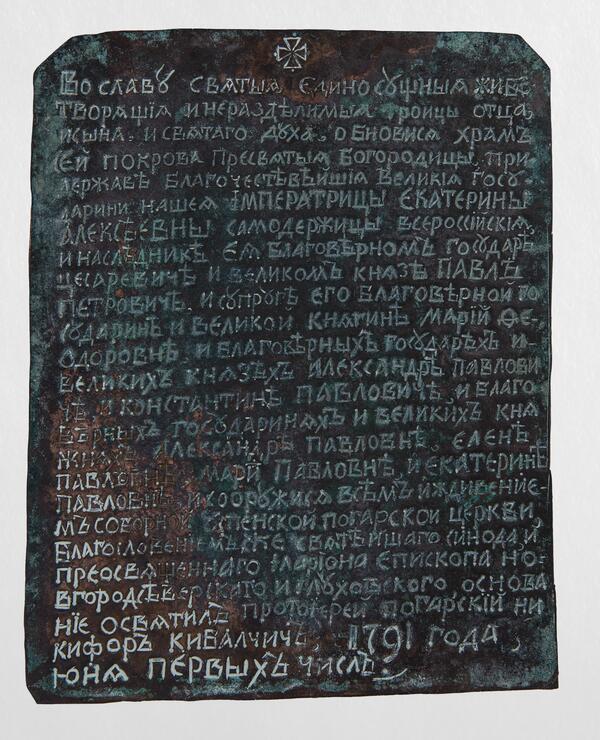 Во славу святыя единосущныя живо
творящія и нераздѣлимыя троицы отца,
исына. и святаго духа. обновися храмъ
сей покрова пресвятыя богородицы, при
державѣ благочестѣвѣйшія великія госу
дарини нашея імператрицы екатерины
алексѣевны самодержицы всероссійскія,
и наслѣдникѣ ея благовѣрномъ государѣ
цесаревичѣ и великомъ князѣ павлѣ
петровичѣ. и супругѣ его благовѣрной го
сударинѣ и великой княгинѣ маріи ѳе,
одоровнѣ и благовѣрныхъ государѣхъ и
великихъ князѣхъ александрѣ павлови
чѣ и константинѣ павловичѣ, и благо
вѣрныхъ государиняхъ и великихъ кня
жнахъ александрѣ павловнѣ, еленѣ
павловнѣ, маріи павловнѣ, и екатеринѣ
павловнѣ, исооружися всѣмъ иждивение
мъ соборной погарской церкви,
благословениемъ же святѣйшаго сінода, и
преосвященнаго іларіона епископа но
вгородсѣверскаго и глуховского основа
ніе освятилъ протоіерей погарскій ни
кифоръ кивалчичъ, 1791 года,
юня первыхъ числъ